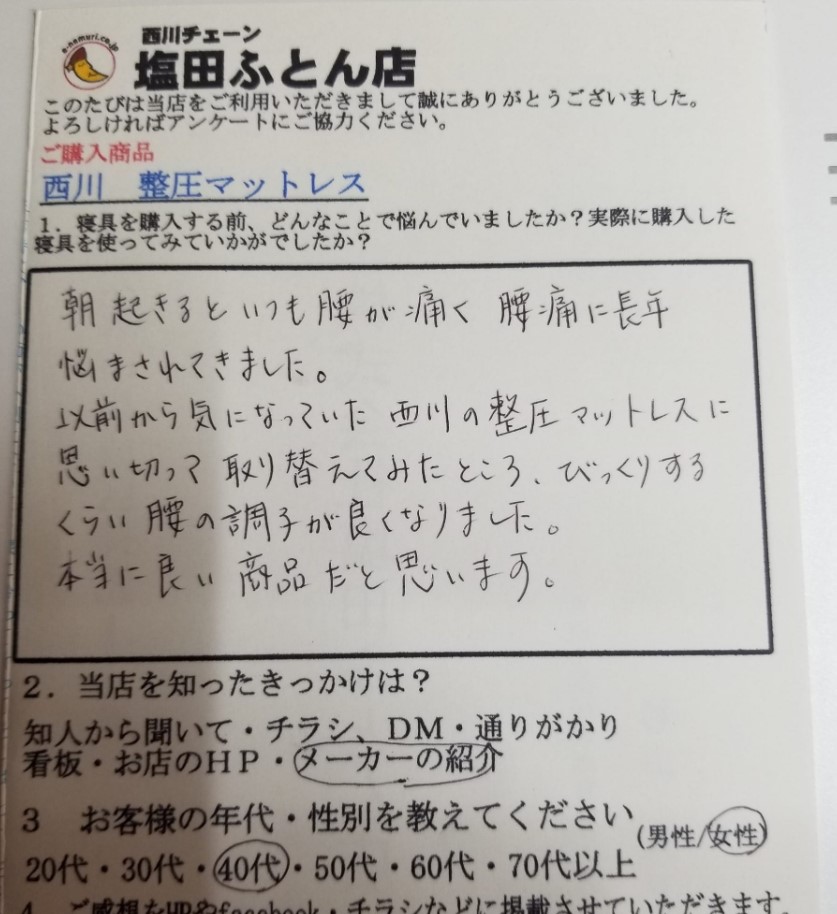 e-nemuri.co.jp
西川チェーン
塩田ふとん店
このたびは当店をご利用いただきまして誠にありがとうございました。
よろしければアンケートにご協力ください。
ご購入商品
西川　整圧マットレス
1．寝具を購入する前、どんなことで悩んでいましたか？実際に購入した
寝具を使ってみていかがでしたか？
朝起きるといつも腰が痛く 腰痛に長年
悩まされてきました。
以前から気になっていた 西川の整圧マットレスに
思い切って取り替えてみたところ、びっくりする
くらい腰の調子が良くなりました。
本当に良い商品だと思います。
2．当店を知ったきっかけは？
知人から聞いて・チラシ、DM・通りがかり
看板・お店のHP・メーカーの紹介
3　お客様の年代・性別を教えてください(男性/女性)
20代・30代・40代・50代・60代・70代以上
4．ご感想をHPやfacebook・チラシなどに掲載させていただきます。